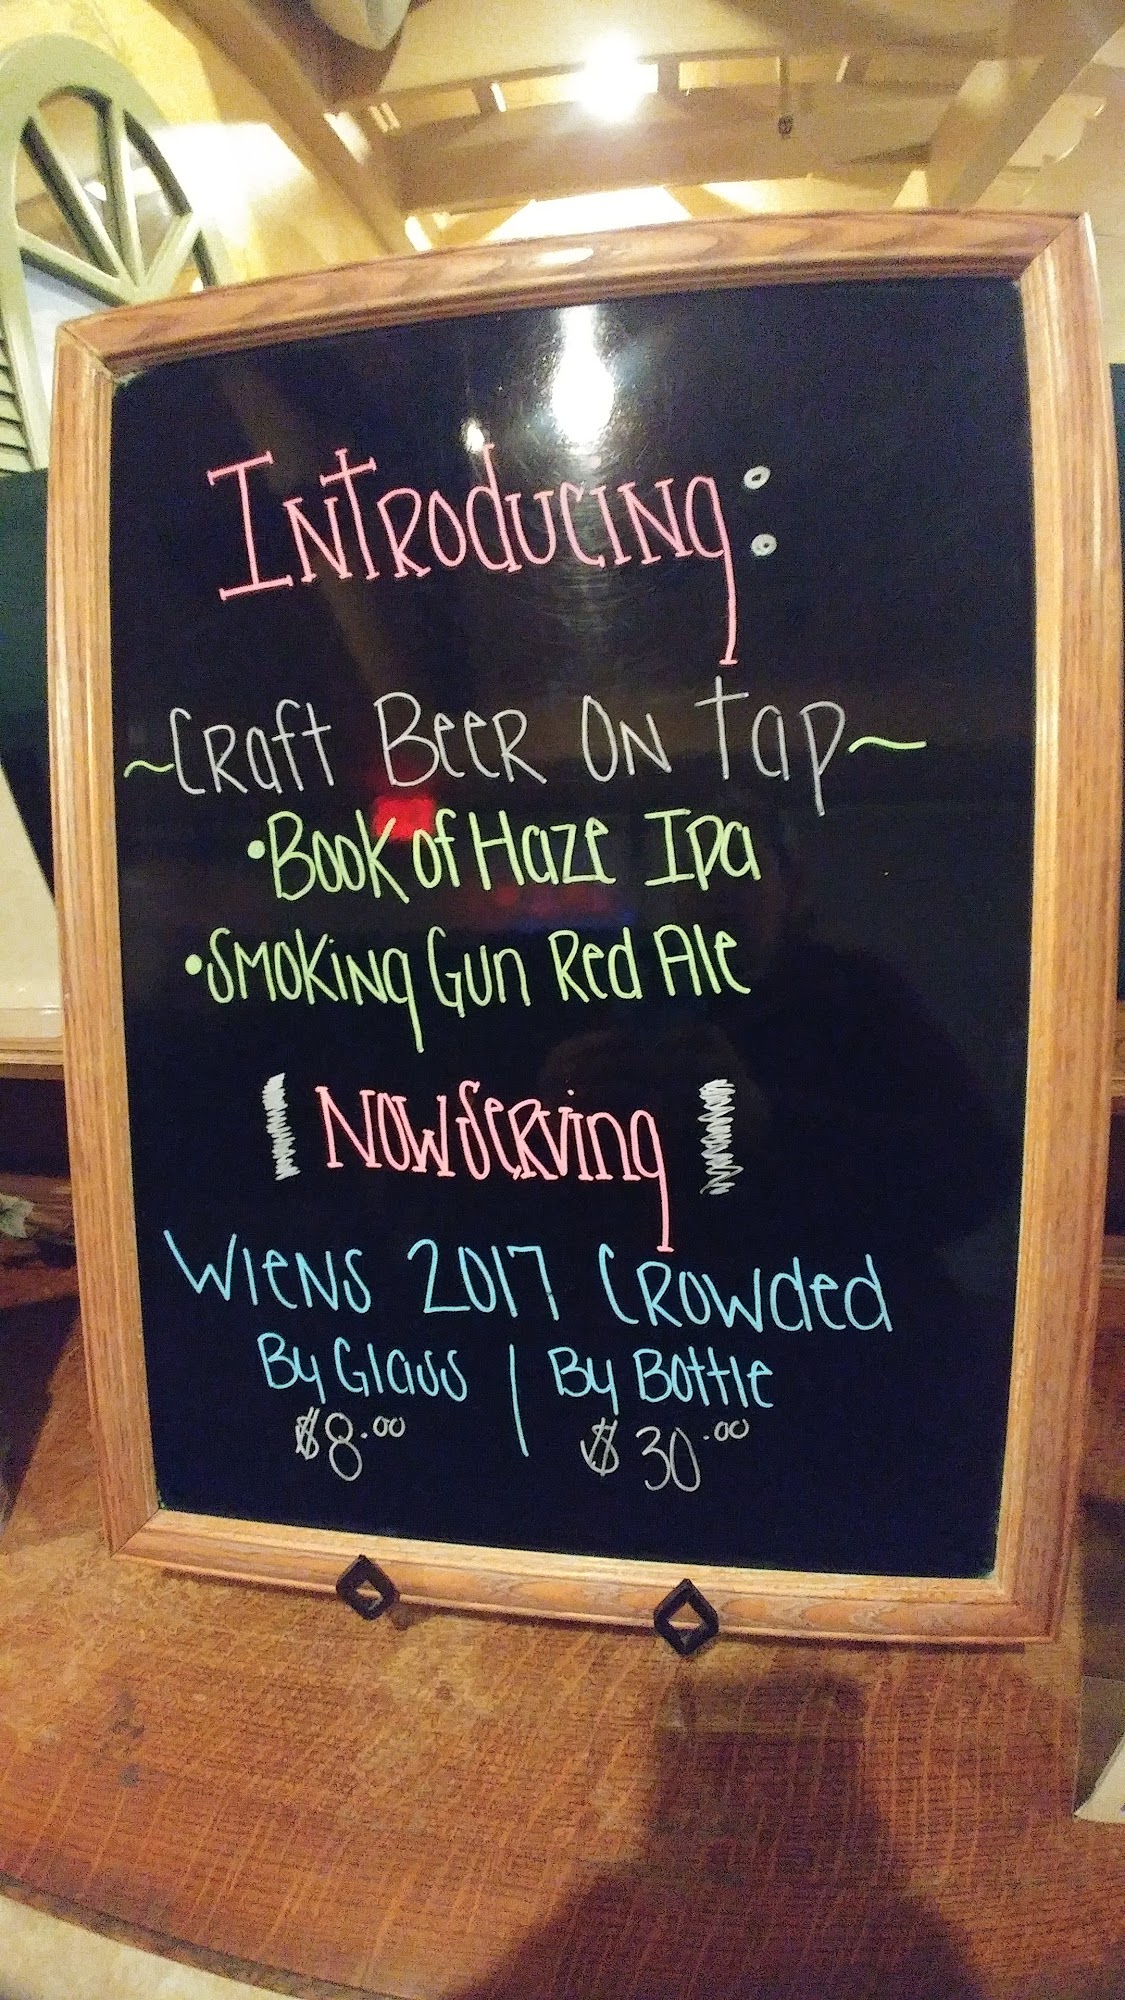 Introducing:
~Craft Beer on Tap~
•Book of Haze Ipa
•Smoking Gun Red Ale
Now Serving
Wiens 2017 Crowded
By Glass | By Bottle
$8.00 $30.00